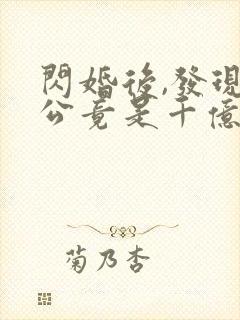 閃婚後,發現
公竟是千億
菊乃杏